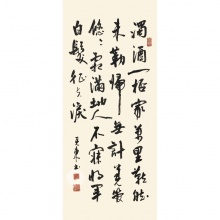 濁酒一杯家萬里燕然
未勒歸無計羌管
悠悠霜滿地人不寐將軍
白髮征夫淚